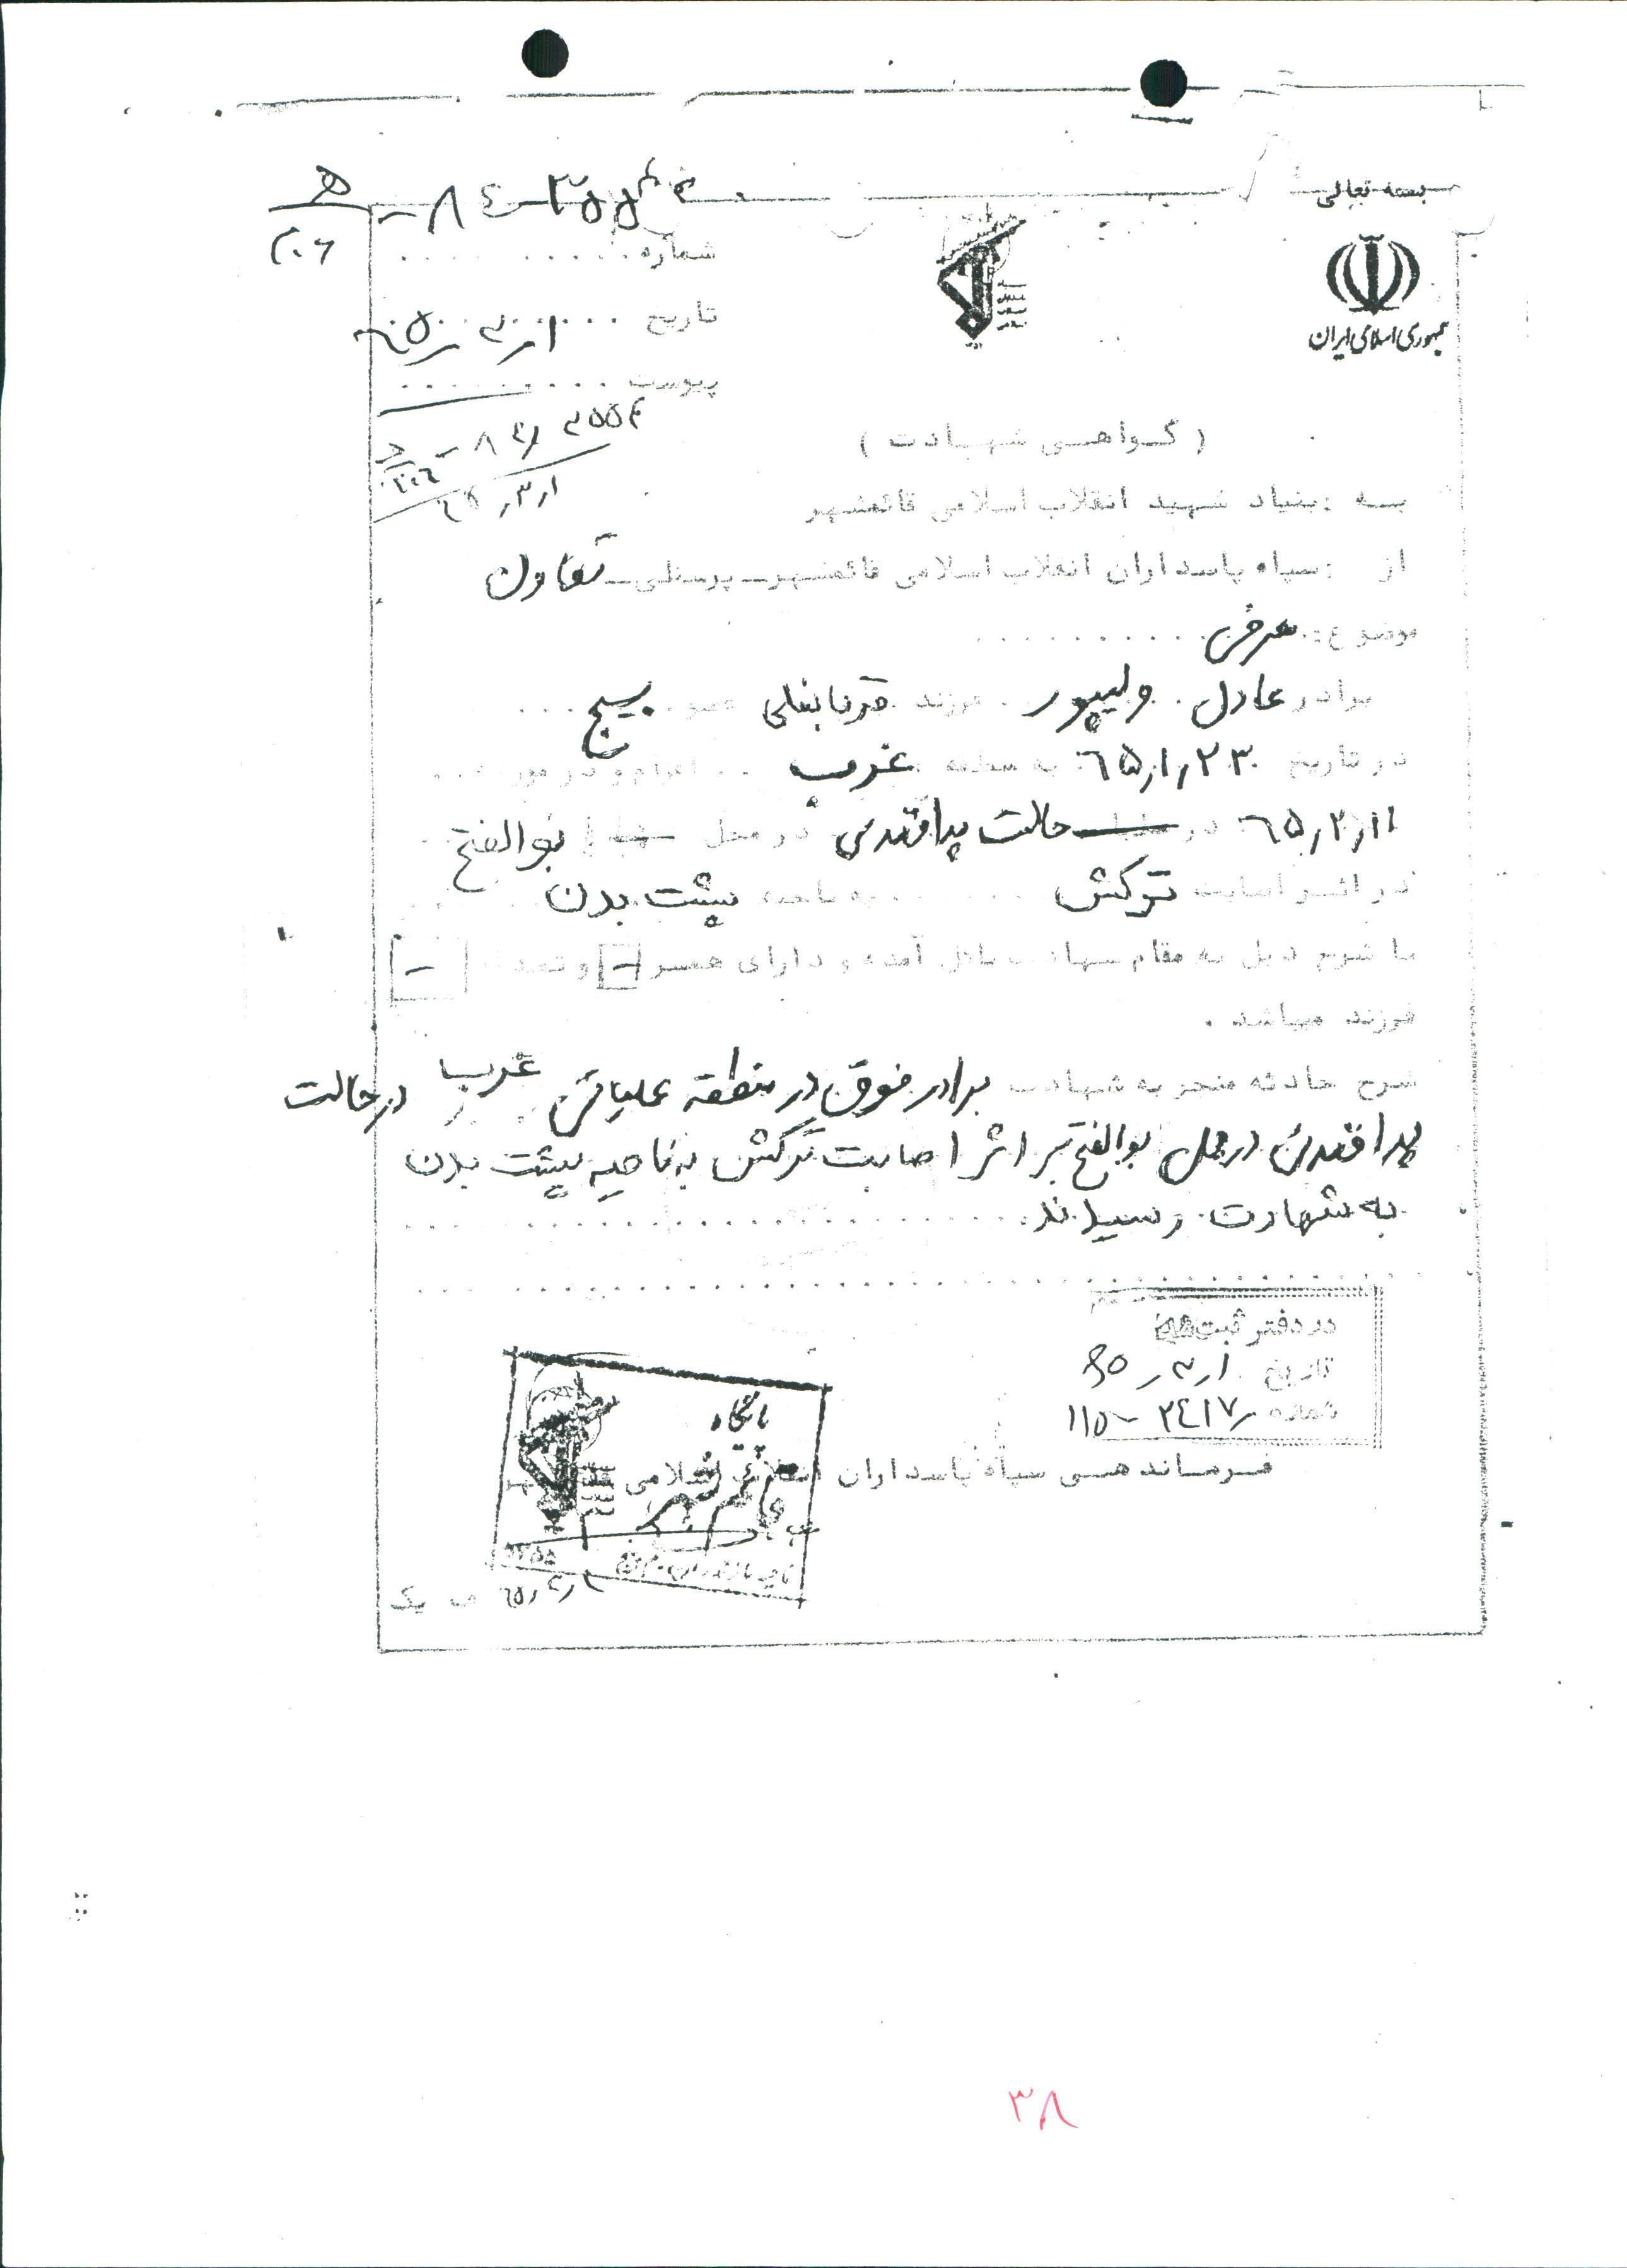 بسمه تعالی
جمهوری اسلامی ایران
شماره
تاریخ ۶۵/۳/۱
پیوست
( گواهی شهادت )
به : بنیاد شهید انقلاب اسلامی قائمشهر
از : سپاه پاسداران انقلاب اسلامی قائمشهر - پرسنلی - تعاون
موضوع : معرفی
برادر عادل ولیپور فرزند قربانعلی عضو بسیج
در تاریخ ۶۵/۱/۲۳ به منطقه غرب اعزام و در مورخه
۶۵/۲/۱۱ در حالت پدافندی در محل بوالفتح
در اثر اصابت ترکش به ناحیه پشت بدن
با شرح ذیل به مقام شهادت نائل آمده و دارای همسر - و تعداد -
فرزند میباشد .
شرح حادثه منجر به شهادت برادر فوق در منطقه عملیاتی غرب در حالت
پدافندی در محل بوالفتح بر اثر اصابت ترکش به ناحیه پشت بدن
به شهادت رسیدند.
در دفتر ثبت شد
تاریخ ۶۵/۳/۱
شماره ۲۴۱۷/-۱۱۵
فرماندهی سپاه پاسداران انقلاب اسلامی
قائم شهر
۳۸